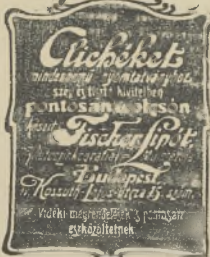 Clichéket
mindennemű nyomtatványhoz
szép és tiszta kivitelben
pontosan és olcsón
készít
Fischer Lipót
Budapest
Kossuth Lajos-utcza 15. szám.
Vidéki megrendelések is pontosan
eszközöltetnek.